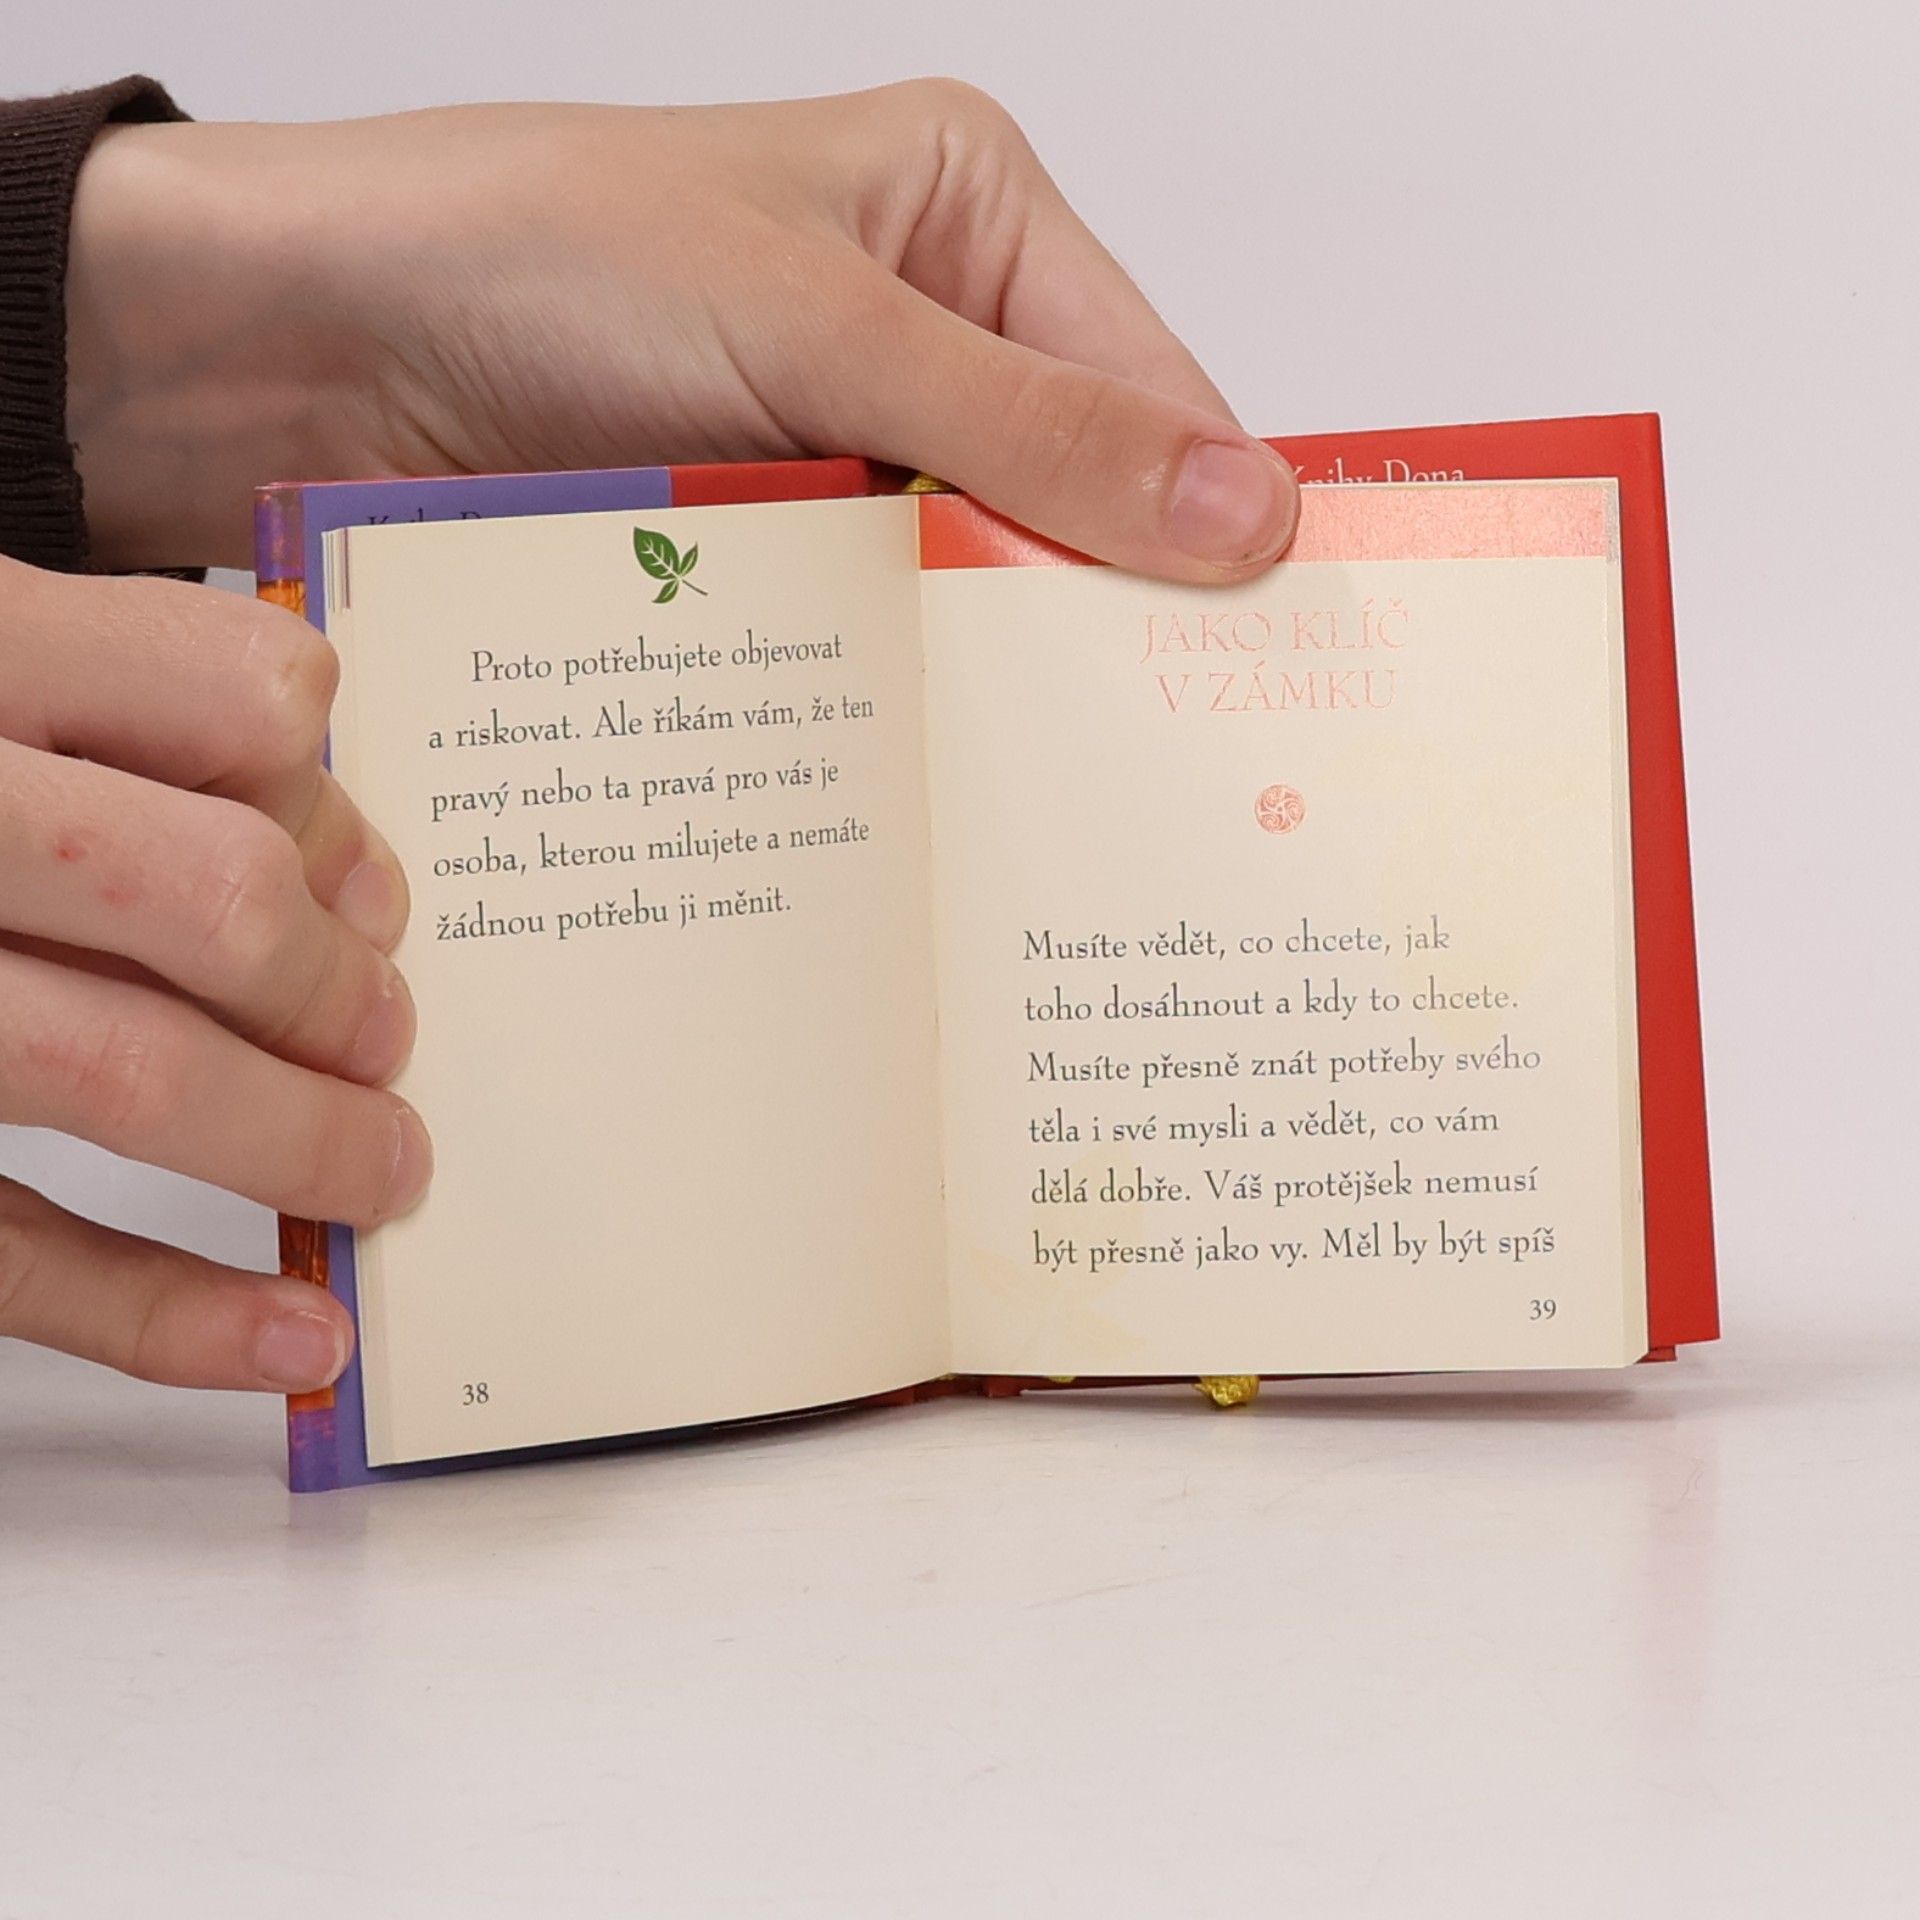 Knihy Dona
Proto potřebujete objevovat
a riskovat. Ale říkám vám, že ten
pravý nebo ta pravá pro vás je
osoba, kterou milujete a nemáte
žádnou potřebu ji měnit.
38
JAKO KLÍČ
V ZÁMKU
Musíte vědět, co chcete, jak
toho dosáhnout a kdy to chcete.
Musíte přesně znát potřeby svého
těla i své mysli a vědět, co vám
dělá dobře. Váš protějšek nemusí
být přesně jako vy. Měl by být spíš
39